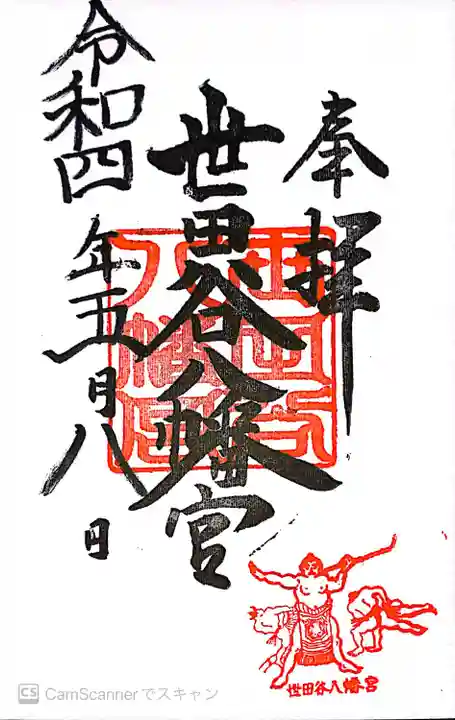 奉拝
世田谷八幡宮
令和四年五月八日
世田谷
八幡宮
世田谷八幡宮
CS CamScannerでスキャン